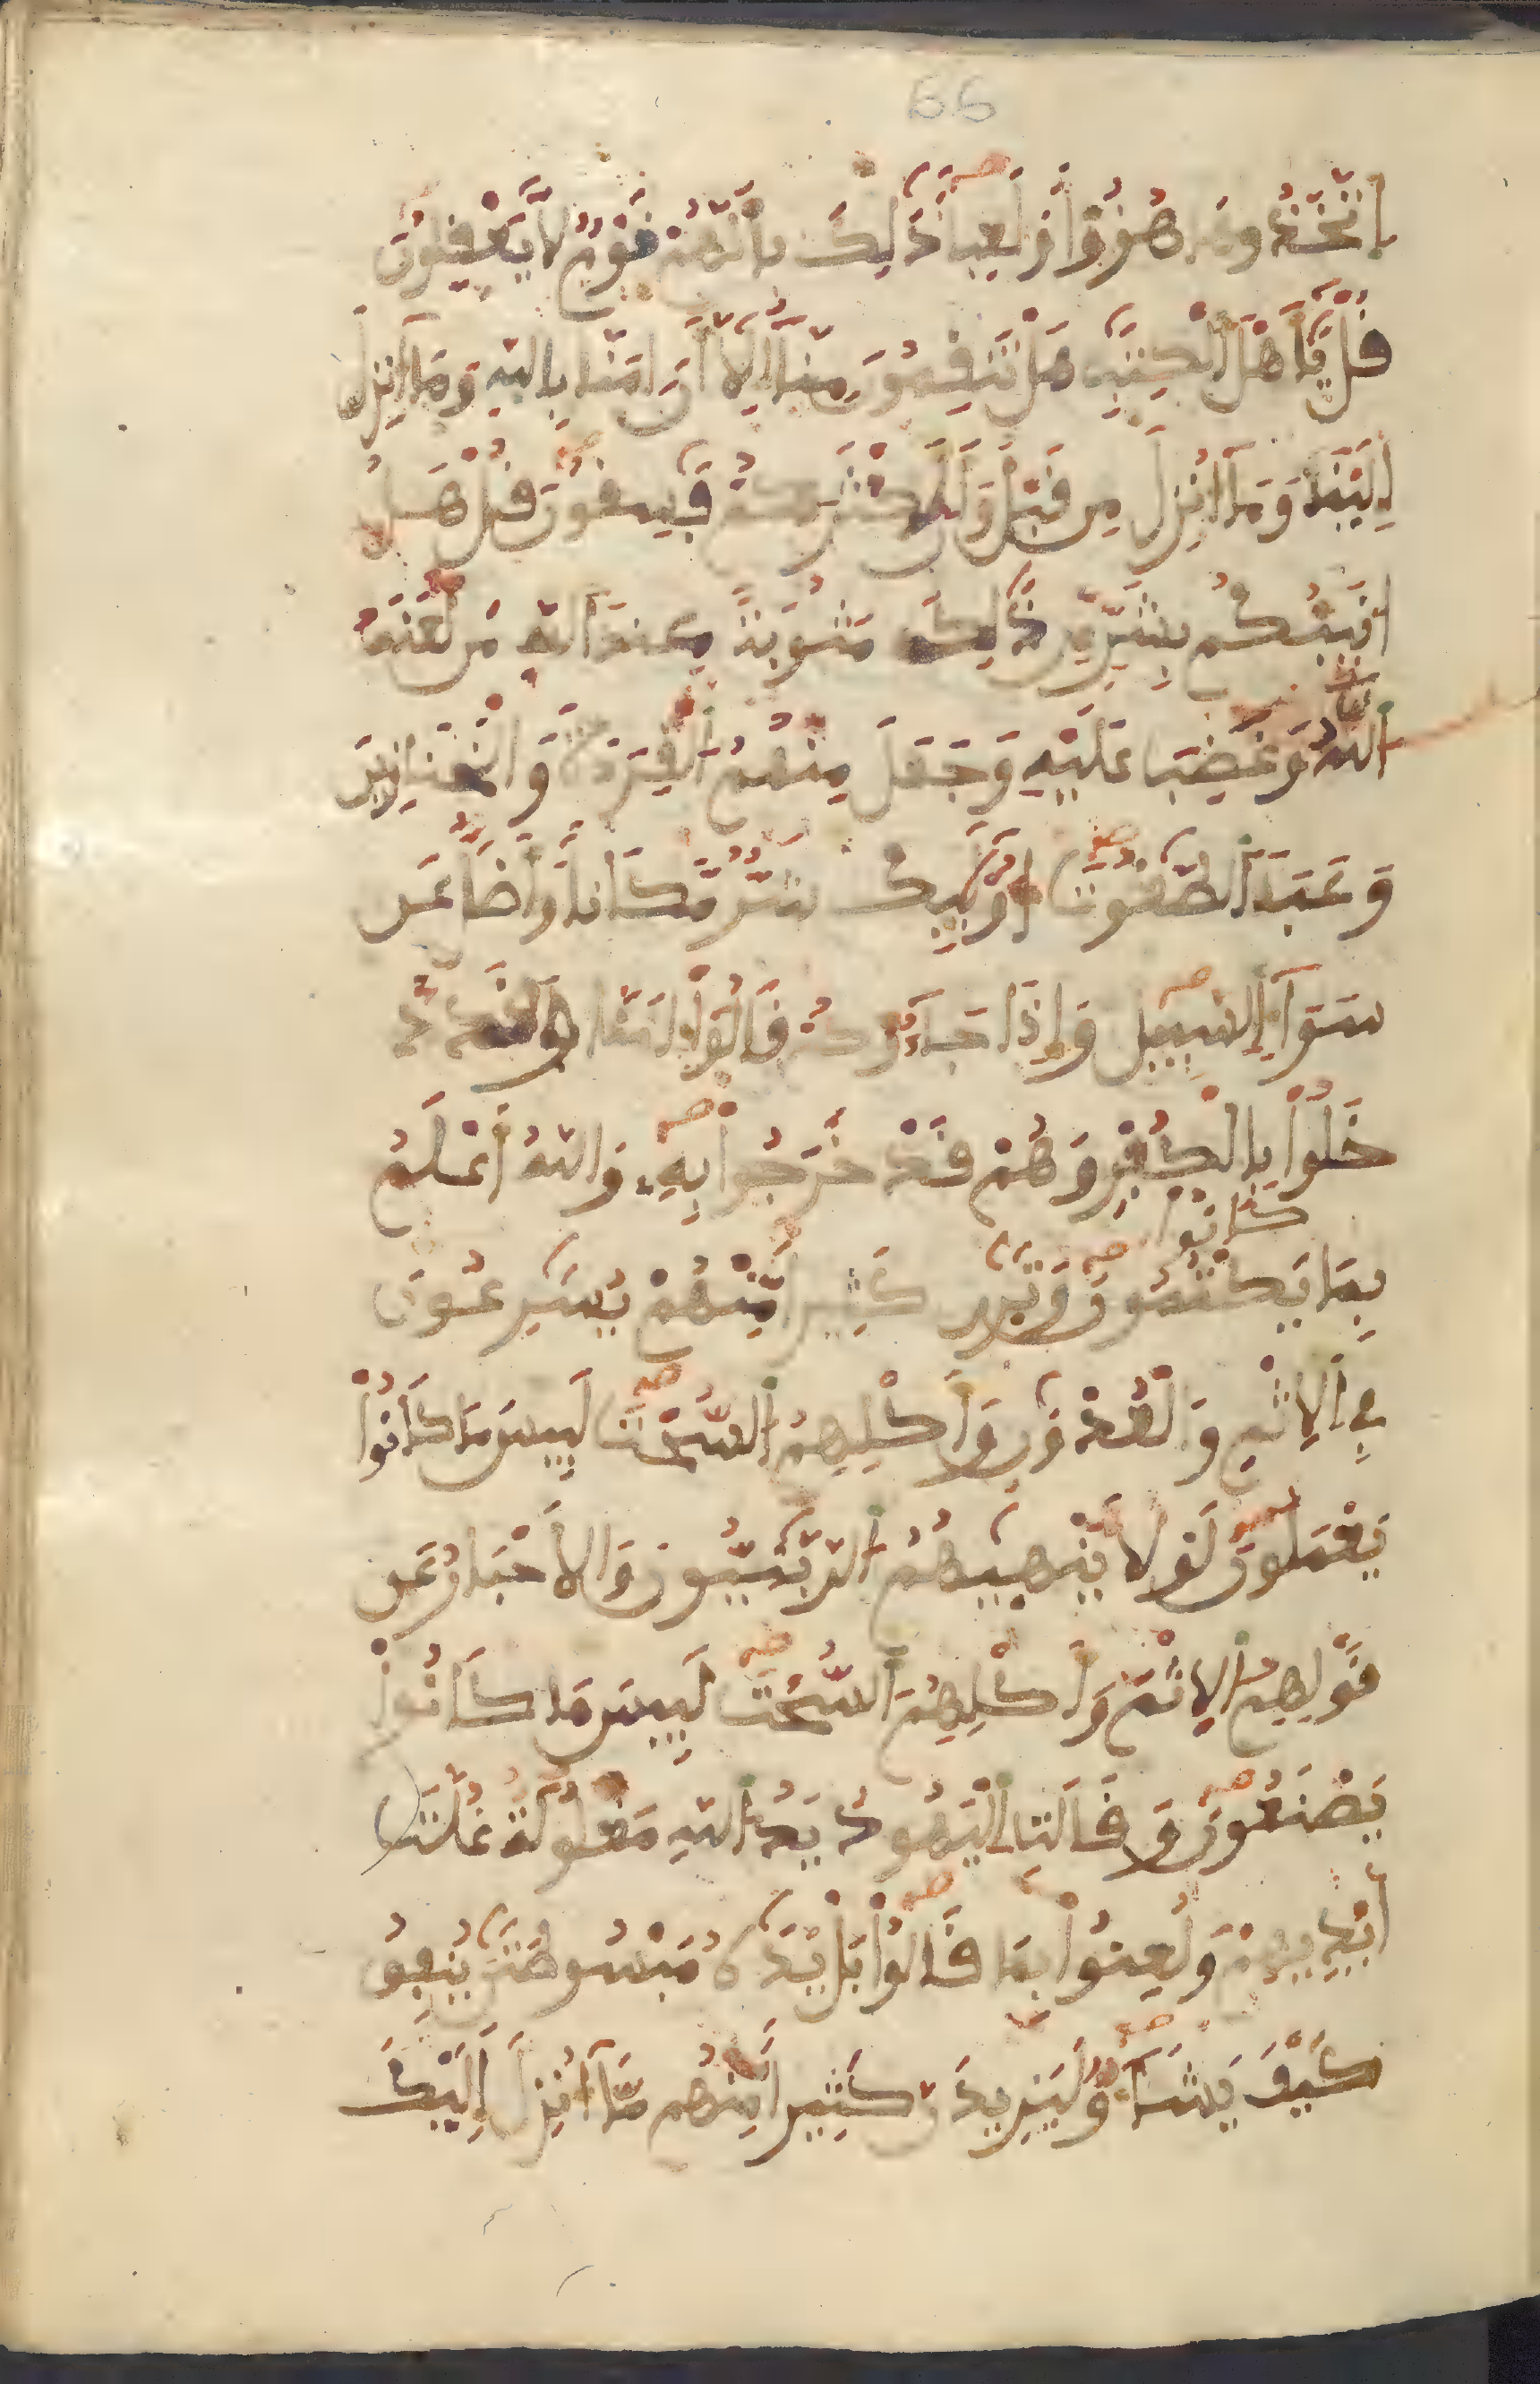 66
اِتَّخَذُوهَا هُزُؤاً وَلَعِباً ذَٰلِكَ بِأَنَّهُمْ قَوْمٌ لَّا يَعْقِلُونَ
قُلْ يَٰأَهْلَ اَلْكِتَٰبِ هَلْ تَنقِمُونَ مِنَّا إِلَّا أَنَ اٰمَنَّا بِاللَّهِ وَمَا أُنزِلَ
إِلَيْنَا وَمَا أُنزِلَ مِن قَبْلُ وَأَنَّ أَكْثَرَكُمْ فَٰسِقُونَ قُلْ هَلُ
انَبِّئُكُم بِشَرٍّ مِّن ذَٰلِكَ مَثُوبَةً عِندَ اَللَّهِ مَن لَّعَنَهُ
اَللَّهُ وَغَضِبَ عَلَيْهِ وَجَعَلَ مِنْهُمُ اَلْقِرَدَةَ وَالْخَنَازِيرَ
وَعَبَدَ اَلطَّٰغُوتَ أُوْلَٰئِكَ شَرٌّ مَّكَاناً وَأَضَلُّ عَن
سَوَآءِ اِلسَّبِيلِ وَإِذَا جَآءُوكُمْ قَالُوا ءَامَنَّا وَقَد دَّ
خَلُوا بِالْكُفْرِ وَهُمْ قَدْ خَرَجُوا بِهِ وَاللَّهُ أَعْلَمُ
كَانُوا
بِمَا يَكْتُمُونَ وَتَرَىٰ كَثِيراً مِّنْهُمْ يُسَٰرِعُونَ
فِي اِلِاثْمِ وَالْعُدْوَٰنِ وَأَكْلِهِمُ اُلسُّحْتَ لَبِيسَ مَا كَانُوا
يَعْمَلُونَ لَوْلَا يَنْهَيٰهُمُ اُلرَّبَّٰنِيُّونَ وَالَاحْبَارُ عَن
قَوْلِهِمُ اُلِاثْمَ وَأَكْلِهِمُ اُلسُّحْتَ لَبِيسَ مَا كَانُوا
يَصْنَعُونَ وَقَالَتِ اِلْيَهُودُ يَدُ اُللَّهِ مَغْلُولَةٌ غُلَّتَ
اَيْدِيهِمْ وَلُعِنُوا بِمَا قَالُوا بَلْ يَدَٰهُ مَبْسُوطَتَٰنِ يُنفِقُ
كَيْفَ يَشَآءُ وَلَيَزِيدَنَّ كَثِيراً مِّنْهُم مَّا أُنزِلَ إِلَيْكَ